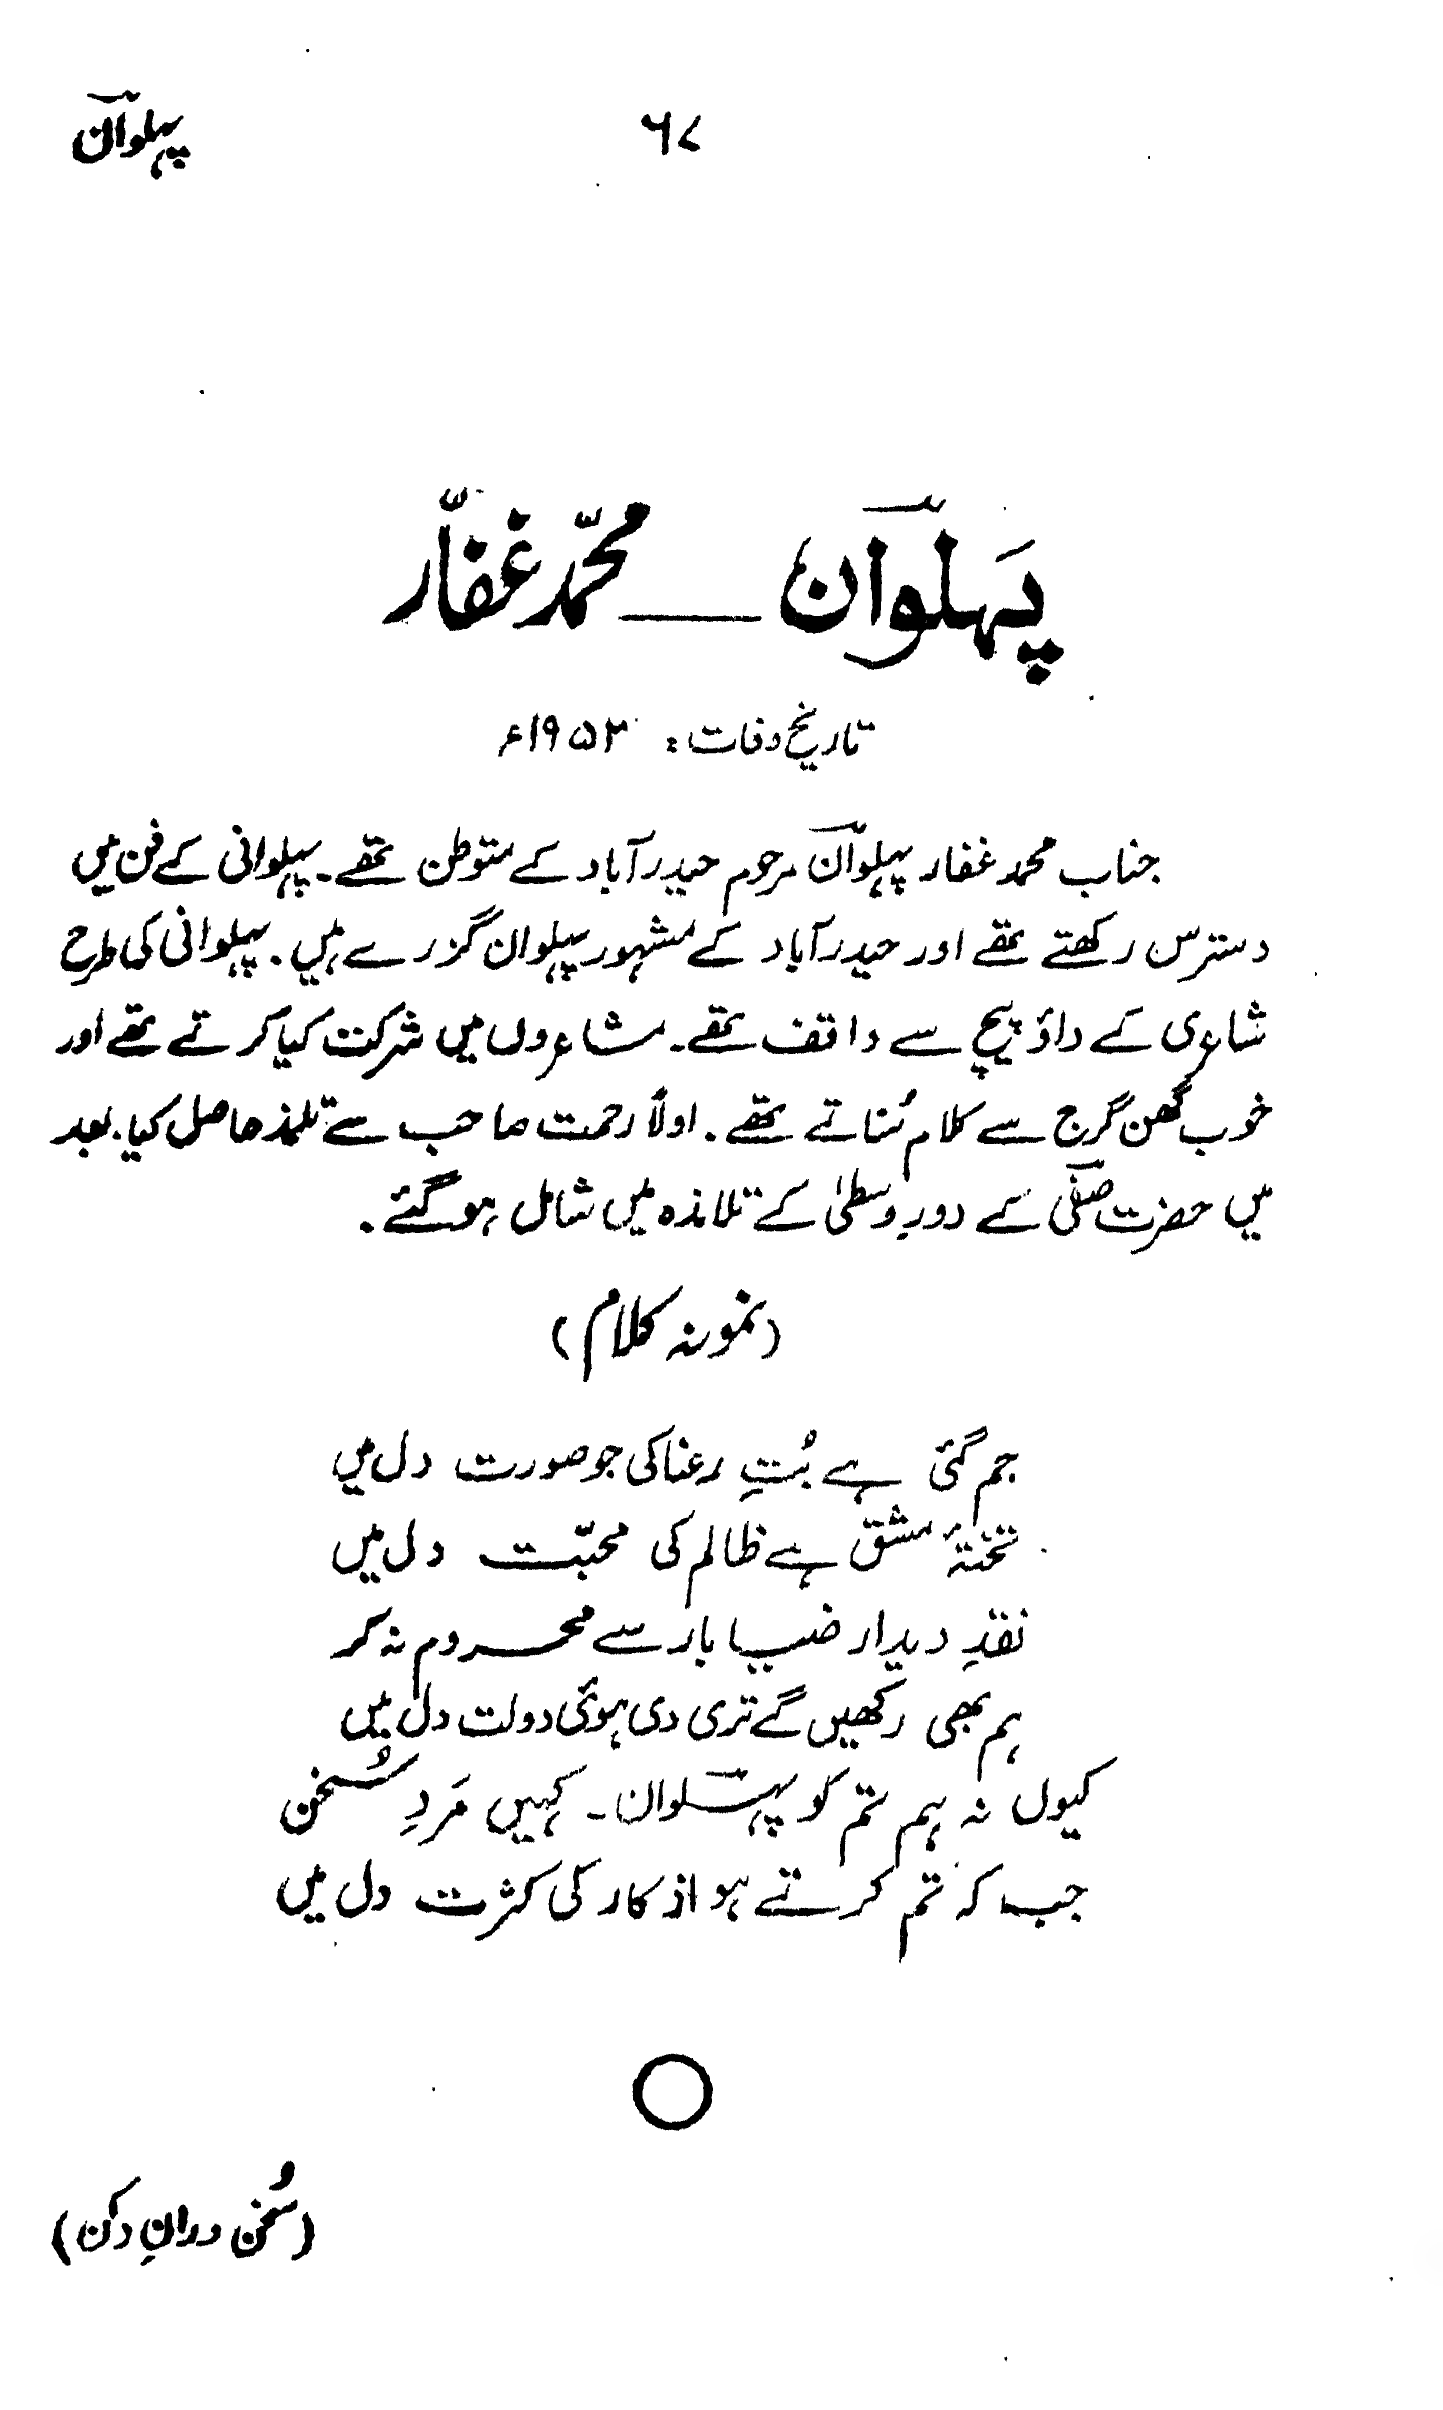 پہلوانؔ
۶۷
پہلوانؔ — محمّد غفّار
تاریخ وفات: ۱۹۵۲ء
جناب محمد غفار پہلوانؔ مرحوم حیدرآباد کے متوطن تھے۔ پہلوانی کے فن میں
دسترس رکھتے تھے اور حیدرآباد کے مشہور پہلوان گزرے ہیں۔ پہلوانی کی طرح
شاعری کے داؤ پیچ سے واقف تھے۔ مشاعروں میں شرکت کیا کرتے تھے اور
خوب گھن گرج سے کلام سُناتے تھے۔ اولاً رحمت صاحب سے تلمذ حاصل کیا۔ بعد
میں حضرت صفیؔ کے دورِ وسطیٰ کے تلامذہ میں شامل ہوگئے۔
(نمونہ کلام)
جم گئی ہے بُتِ رعنا کی جو صورت دل میں
تختۂ مشق ہے ظالم کی محبّت دل میں
نقدِ دیدار ضیا بار سے محروم نہ کر
ہم بھی رکھیں گے تری دی ہوئی دولت دل میں
کیوں نہ ہم تم کو پہلوانؔ۔ کہیں مَردِ سُخن
جب کہ تم کرتے ہو اذکار کی کثرت دل میں
(سُخن ورانِ دکن)